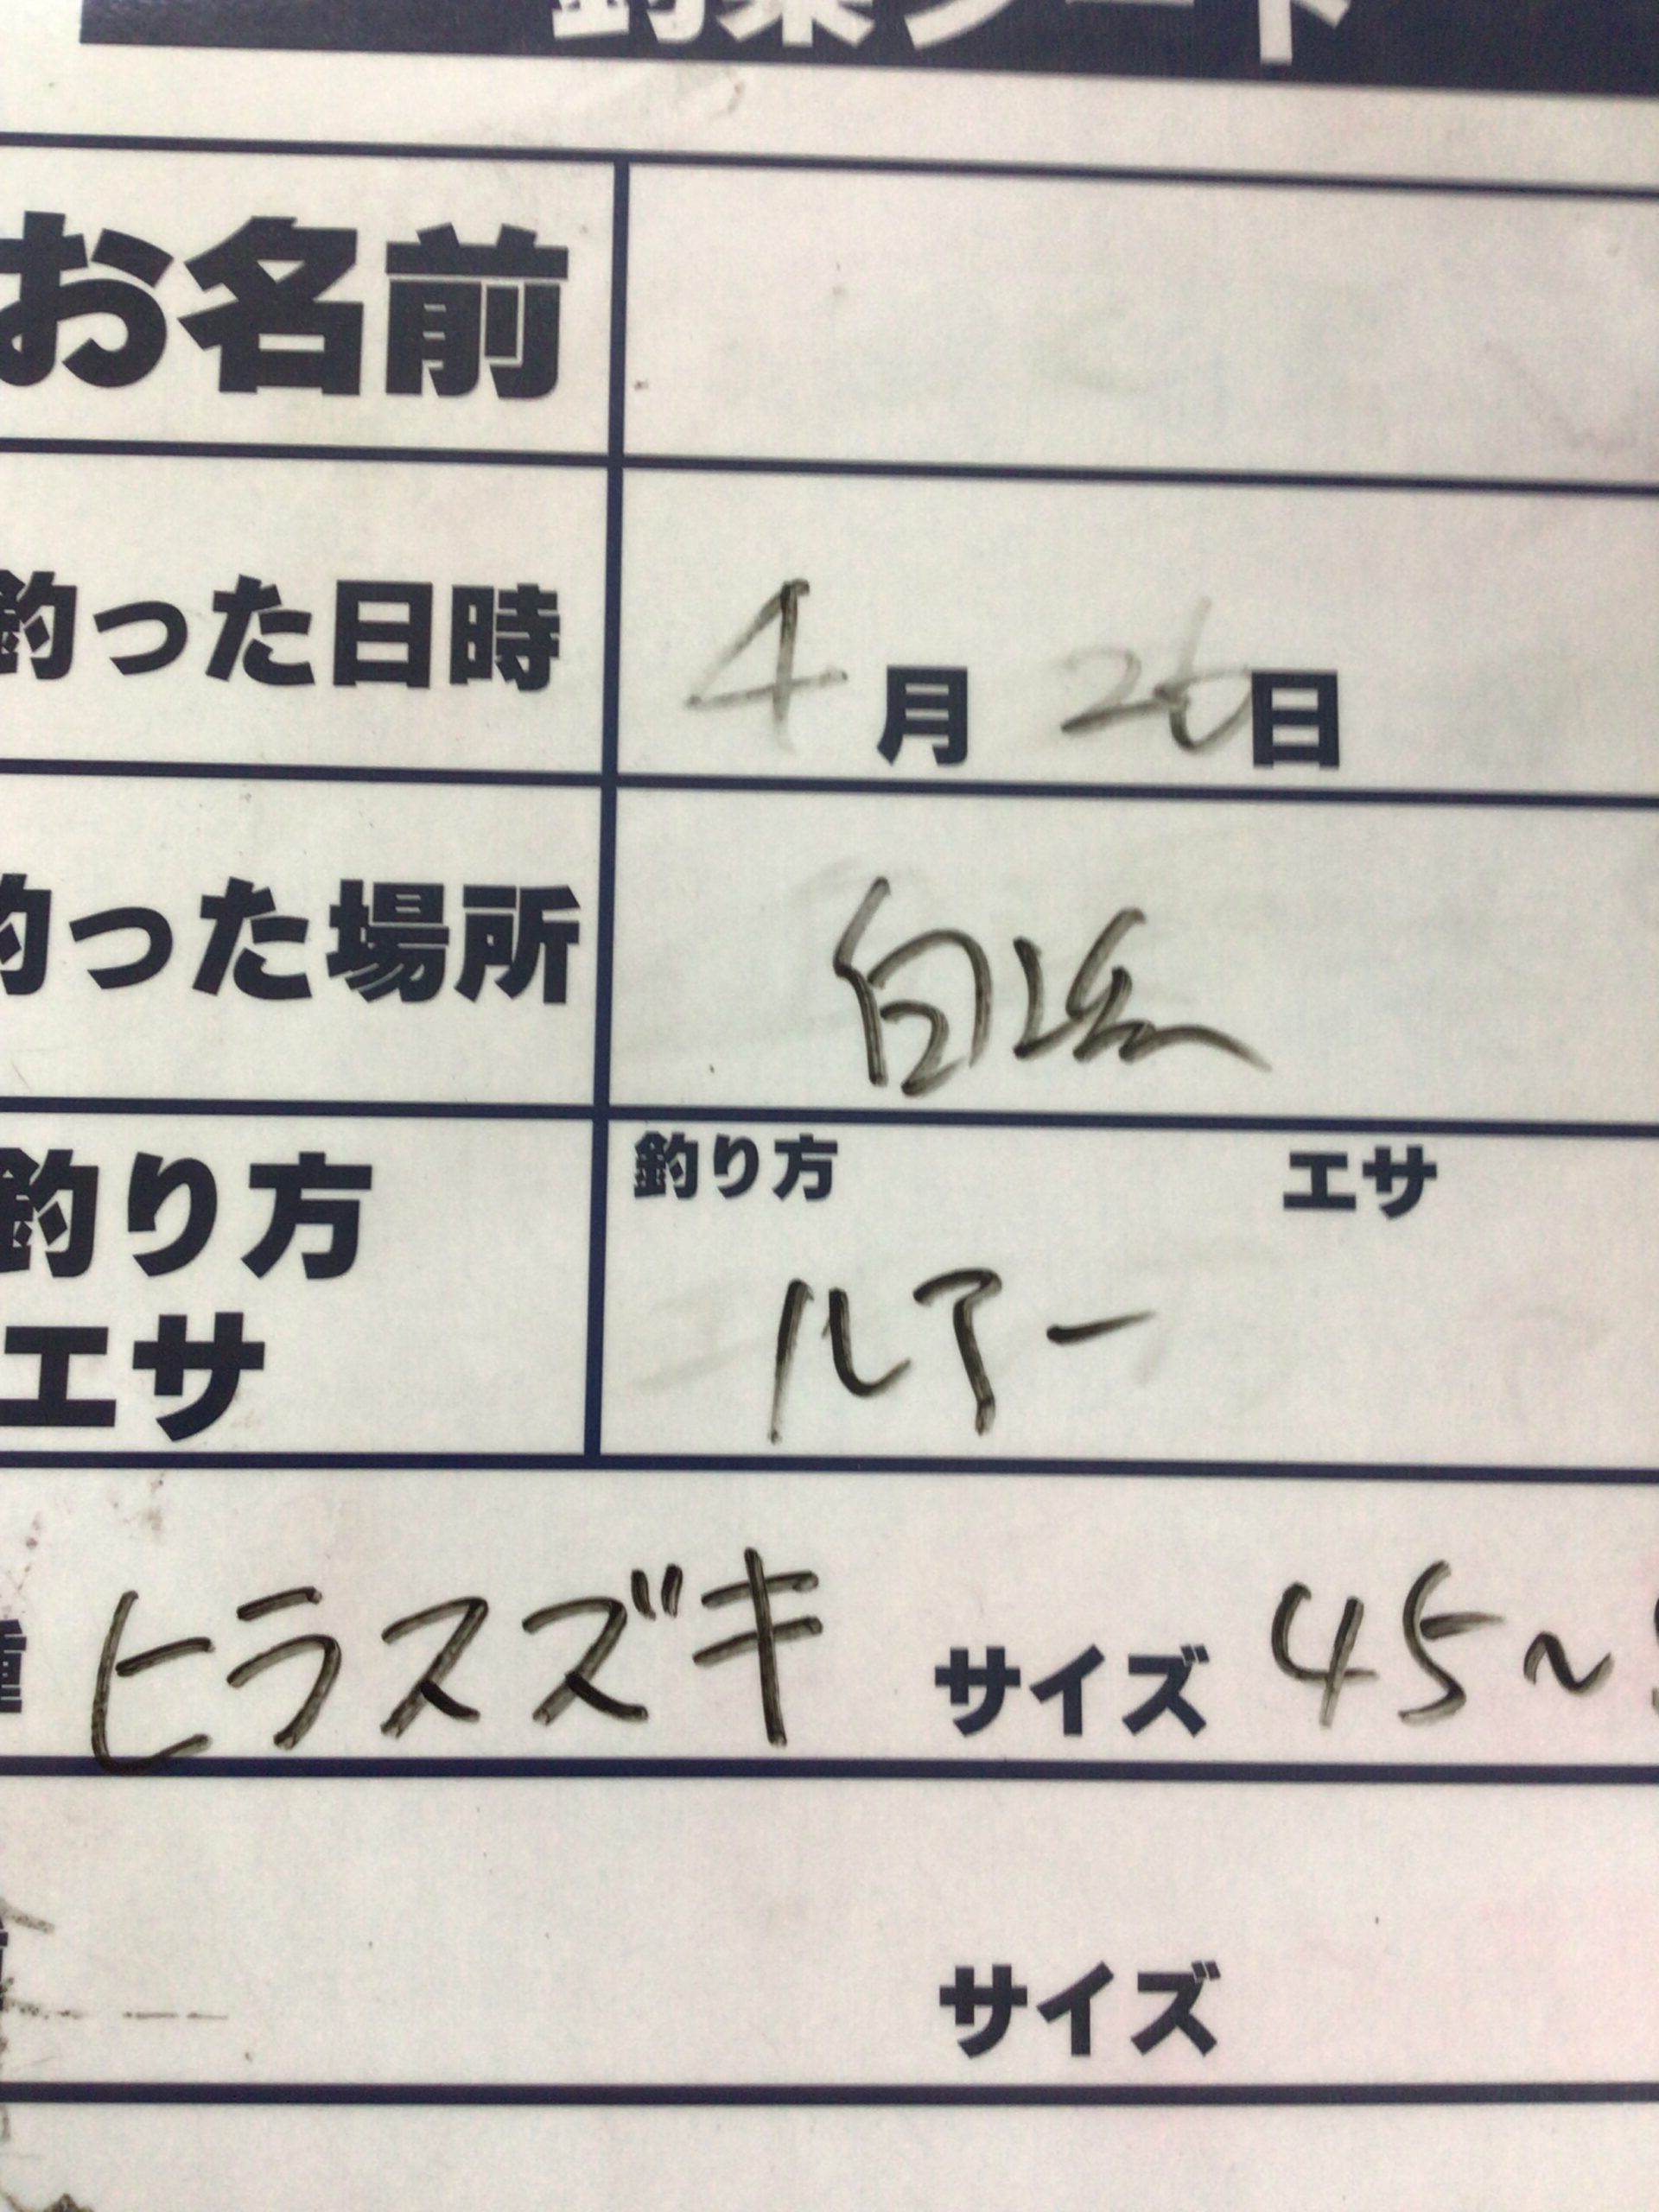 釣果シート
お名前
釣った日時 4月26日
釣った場所 白浜
釣り方 エサ
釣り方
エサ
ルアー
ヒラスズキ サイズ 45~
サイズ